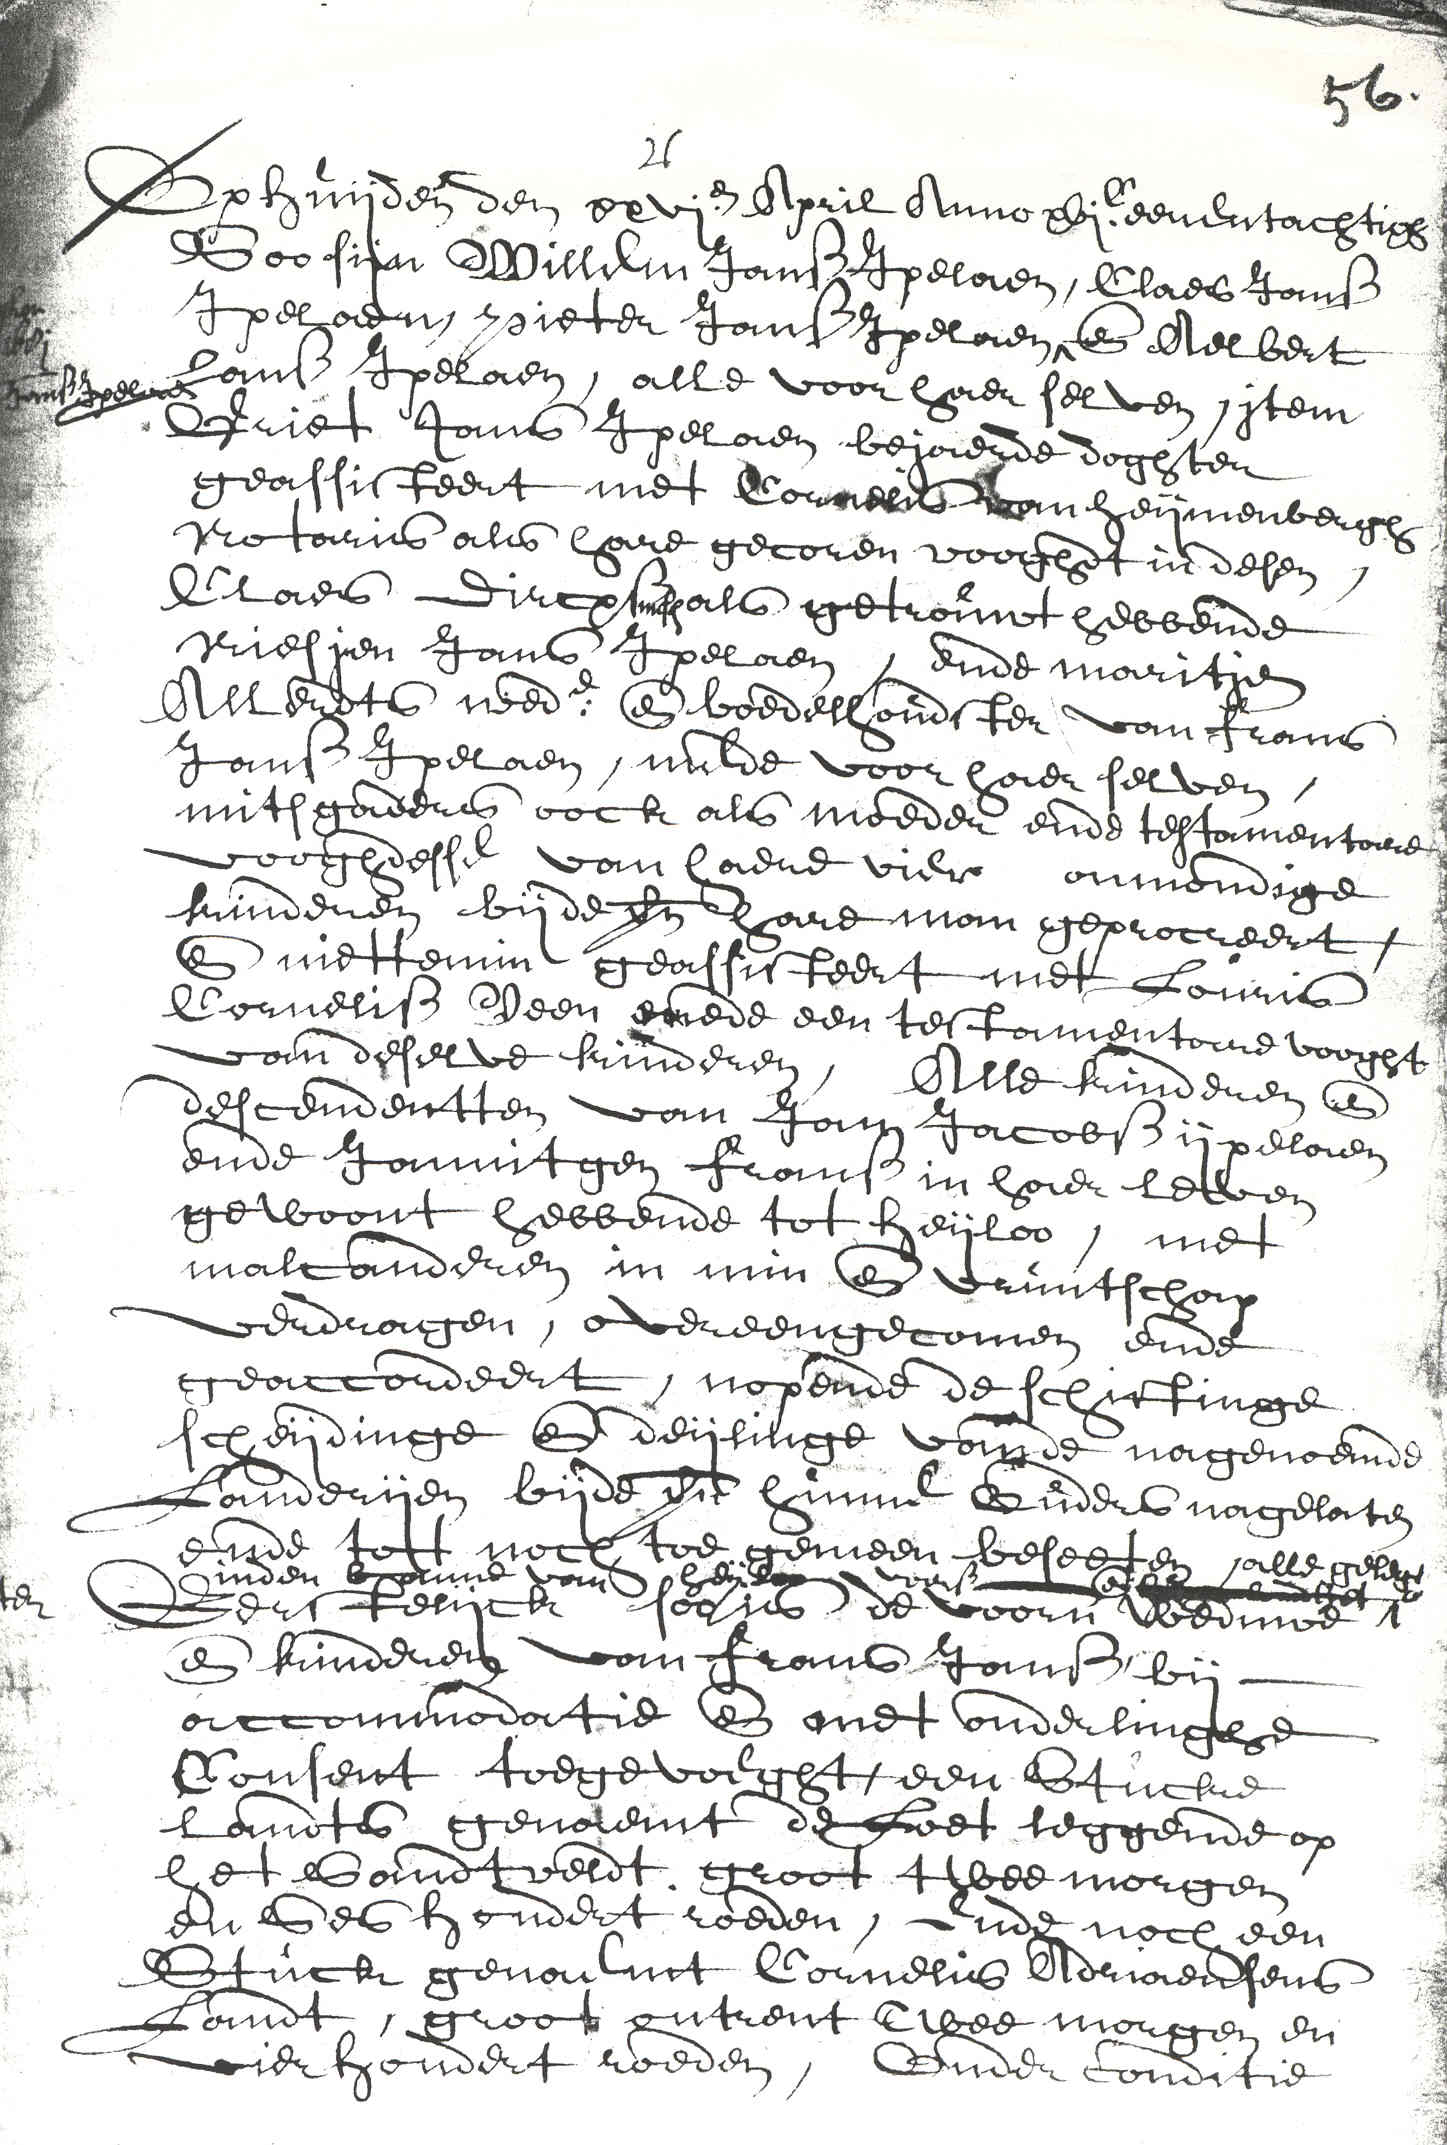 56.
26
Op huijden den xxvj.en April Anno xvj.C eenentachtigh
Soo sijn Willem Janss Ipelaen, Claes Janss
Ipelaen, Pieter Janss Ipelaen, en Aelbert
Janss Ipelaen
Janss Ipelaen, alle voor haer selven, item
Griet Jans Ipelaen bejaerde doghter
geassisteert met Cornelis van Heijmenbergh
Notaris als hare gecoren vooghdt in desen,
Claes Dircxss als getrouwt hebbende
Niesjen Jans Ipelaen, ende Maritjen
Allerdts wed.e en boedelhoudster van Frans
Janss Ipelaen, mede voor haer selven,
mitsgaders oock als moeder ende testamentaire
vooghdesse van haere vier onmondige
kinderen bijde hare man geprocreert,
en niettemin geassisteert met Louris
Corneliss Veen mede een testamentaire vooght
van deselve kinderen, Alle kinderen en
descendentten van Jan Jacobss ijpelaen
ende Jannitgen Franss in haer leven
gewoont hebbende tot Heijloo, met
malcanderen in min en vruntschap
verdragen, overeengecomen ende
geaccordeert, nopende de schiftinge
scheijdinge en deijlinge vande nagenoemde
Landerijen bijde hunne Ouders nagelaten
ende tott noch toe gemeen beseeten, alle gelege
inden banne van Heijloo voorss
Eerstelijck soo is de voorn Weduwe
en kinderen van Frans Janss bij
accommodatie en met onderlinghe
Consent toegevoeght, een Stucke
landts genaemt de Loet leggende op
het Sandtveldt. groot twee morgen
en Ses hondert roeden, Ende noch een
Stuck genaemt Cornelis Adriaensens
Landt, groot ontrent twee morgen en
vier hondert roeden, Onder Conditie